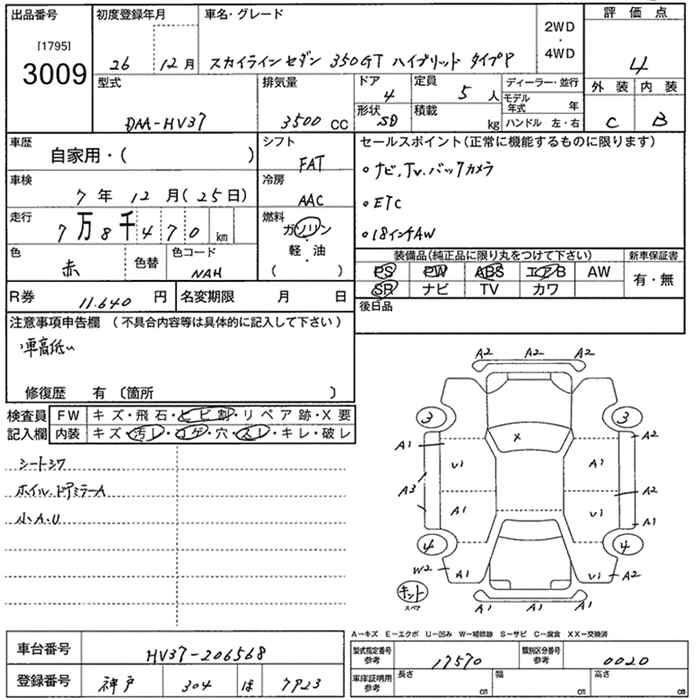 出品番号 初度登録年月 車名・グレード 2WD・4WD 評価点
[1795]
3009 26 12月 スカイラインセダン 350GT ハイブリッド タイプP 4
型式 排気量 ドア 4 定員 5人 ディーラー・並行 外装 内装
DAA-HV37 3500CC 形状 SD 積載 kg モデル年式 年 C B
ハンドル 左・右
車歴 自家用・( ) シフト FAT セールスポイント(正常に機能するものに限ります)
車検 7年12月(25日) 冷房 AAC ・ナビ.Tv.バックカメラ
走行 7万8千470km 燃料 ガソリン・軽油 ( ) ・ETC
・18インチAW
色 赤 色替 色コード NAH 装備品(純正品に限り丸をつけて下さい) 新車保証書
PS PW ABS エアB AW 有・無
SR ナビ TV カワ
R券 11.640円 名変期限 月 日 後日品
注意事項申告欄(不具合内容等は具体的に記入して下さい)
車高低い
修復歴 有〔箇所 〕
検査員記入欄 FW キズ・飛石・ヒビ割・リペア跡・X要
内装 キズ・汚レ・コゲ・穴・スレ・キレ・破レ
シートシワ
ホイル.ドアミラーA
小A.U
A2 A2 A2
3 3
A1 A2
X
U1 A1
A3 A2
A1 U1
A1 A1
4 4
W2 A1 U1 A2
キット
スペア
A1 A1 A1
A—キズ E—エクボ U—凹み W—補修跡 S—サビ C—腐食 XX—交換済
車台番号 HV37-206568 型式指定番号 参考 17570 類別区分番号 参考 0020
登録番号 神戸 304 ほ 7923 車庫証明用 参考 長さ cm 幅 cm 高さ cm